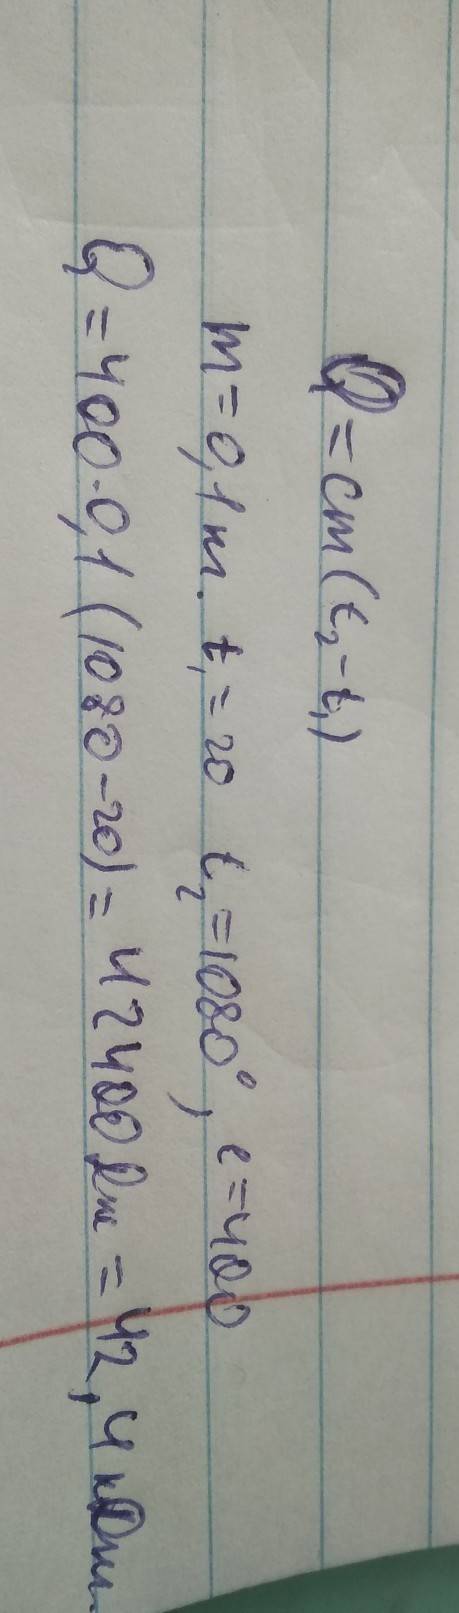 Q = cm(t₂-t₁)
m = 0,1 т. t₁ = 20 t₂ = 1080°, c = 400
Q = 400·0,1(1080-20) = 42400 Дж = 42,4 кДж.